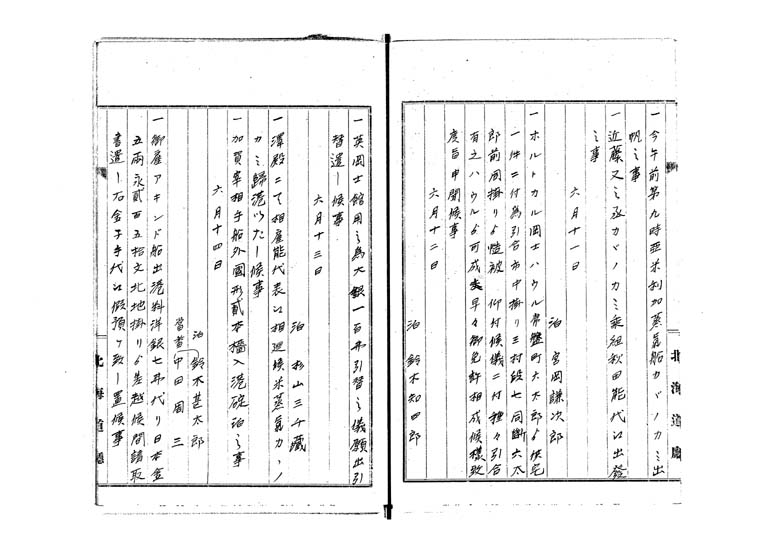 一今午前第九時亜米利加蒸気船カバノカミ出
帆之事
一近藤又之丞カバノカミ乗組秋田能代江出発
之事
六月十一日
泊 宮岡謙次郎
一ホルトカル岡士ハウル常盤町大太郎ゟ
一件ニ付為引合市中掛り三村段七同断六太
郎前同掛りゟ 被 仰付候儀ニ付種々引合
有之ハウルゟ可成 早々御免許相成候様致
度旨申聞候事
六月十二日
泊 鈴木知四郎
北海道廳
一英岡士館用之為大銀一百弗引替之儀願出引
替遣し候事
六月十三日
泊 杉山三千蔵
一澤殿ニて相雇能代表江相廻候米蒸気カハノ
カミ歸港いたし候事
一加賀宰相手船外國形貳本檣入港碇泊之事
六月十四日
泊 鈴木甚太郎
當番 中田周三
一御雇アキンド船出港料洋銀七弗代り日本金
五兩永貳百五拾文北地掛りゟ差越候間請取
書遣し右金子手代江假預り致し置候事
北海道廳